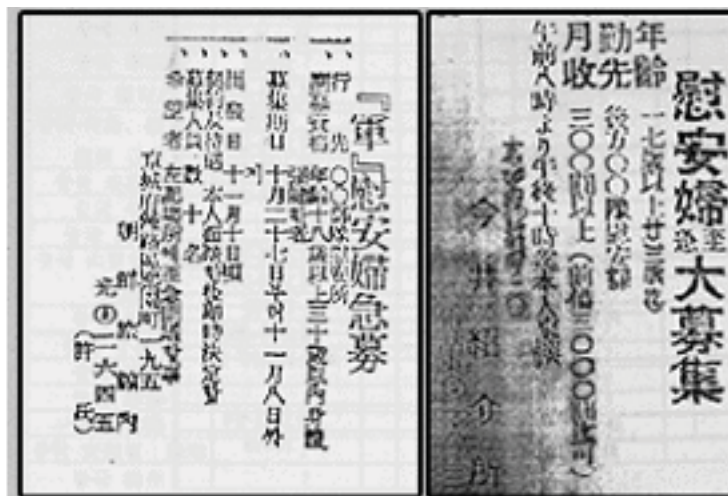 慰安婦至急大募集
年齢 一七歳以上廿三歳迄
勤先 後方〇〇隊慰安部
月収 三〇〇圓以上(前借三〇〇〇圓迄可)
午前八時より午後十時迄本人来談
今井紹介所
『軍』慰安婦急募
一、行先 〇〇部隊慰安所
一、應募資格 年齢十八歳以上三十歳以内身體
强健者
一、募集期日 十月二十七日부터十一月八日外
지
一、出發日 十一月十日頃
一、契約及待遇 本人面接後即時決定함
一、募集人員 數十名
一、希望者 左記場所에至急問議할事
京城府鍾路區樂園町一九五
朝鮮旅館内
光③二六四五
(許氏)